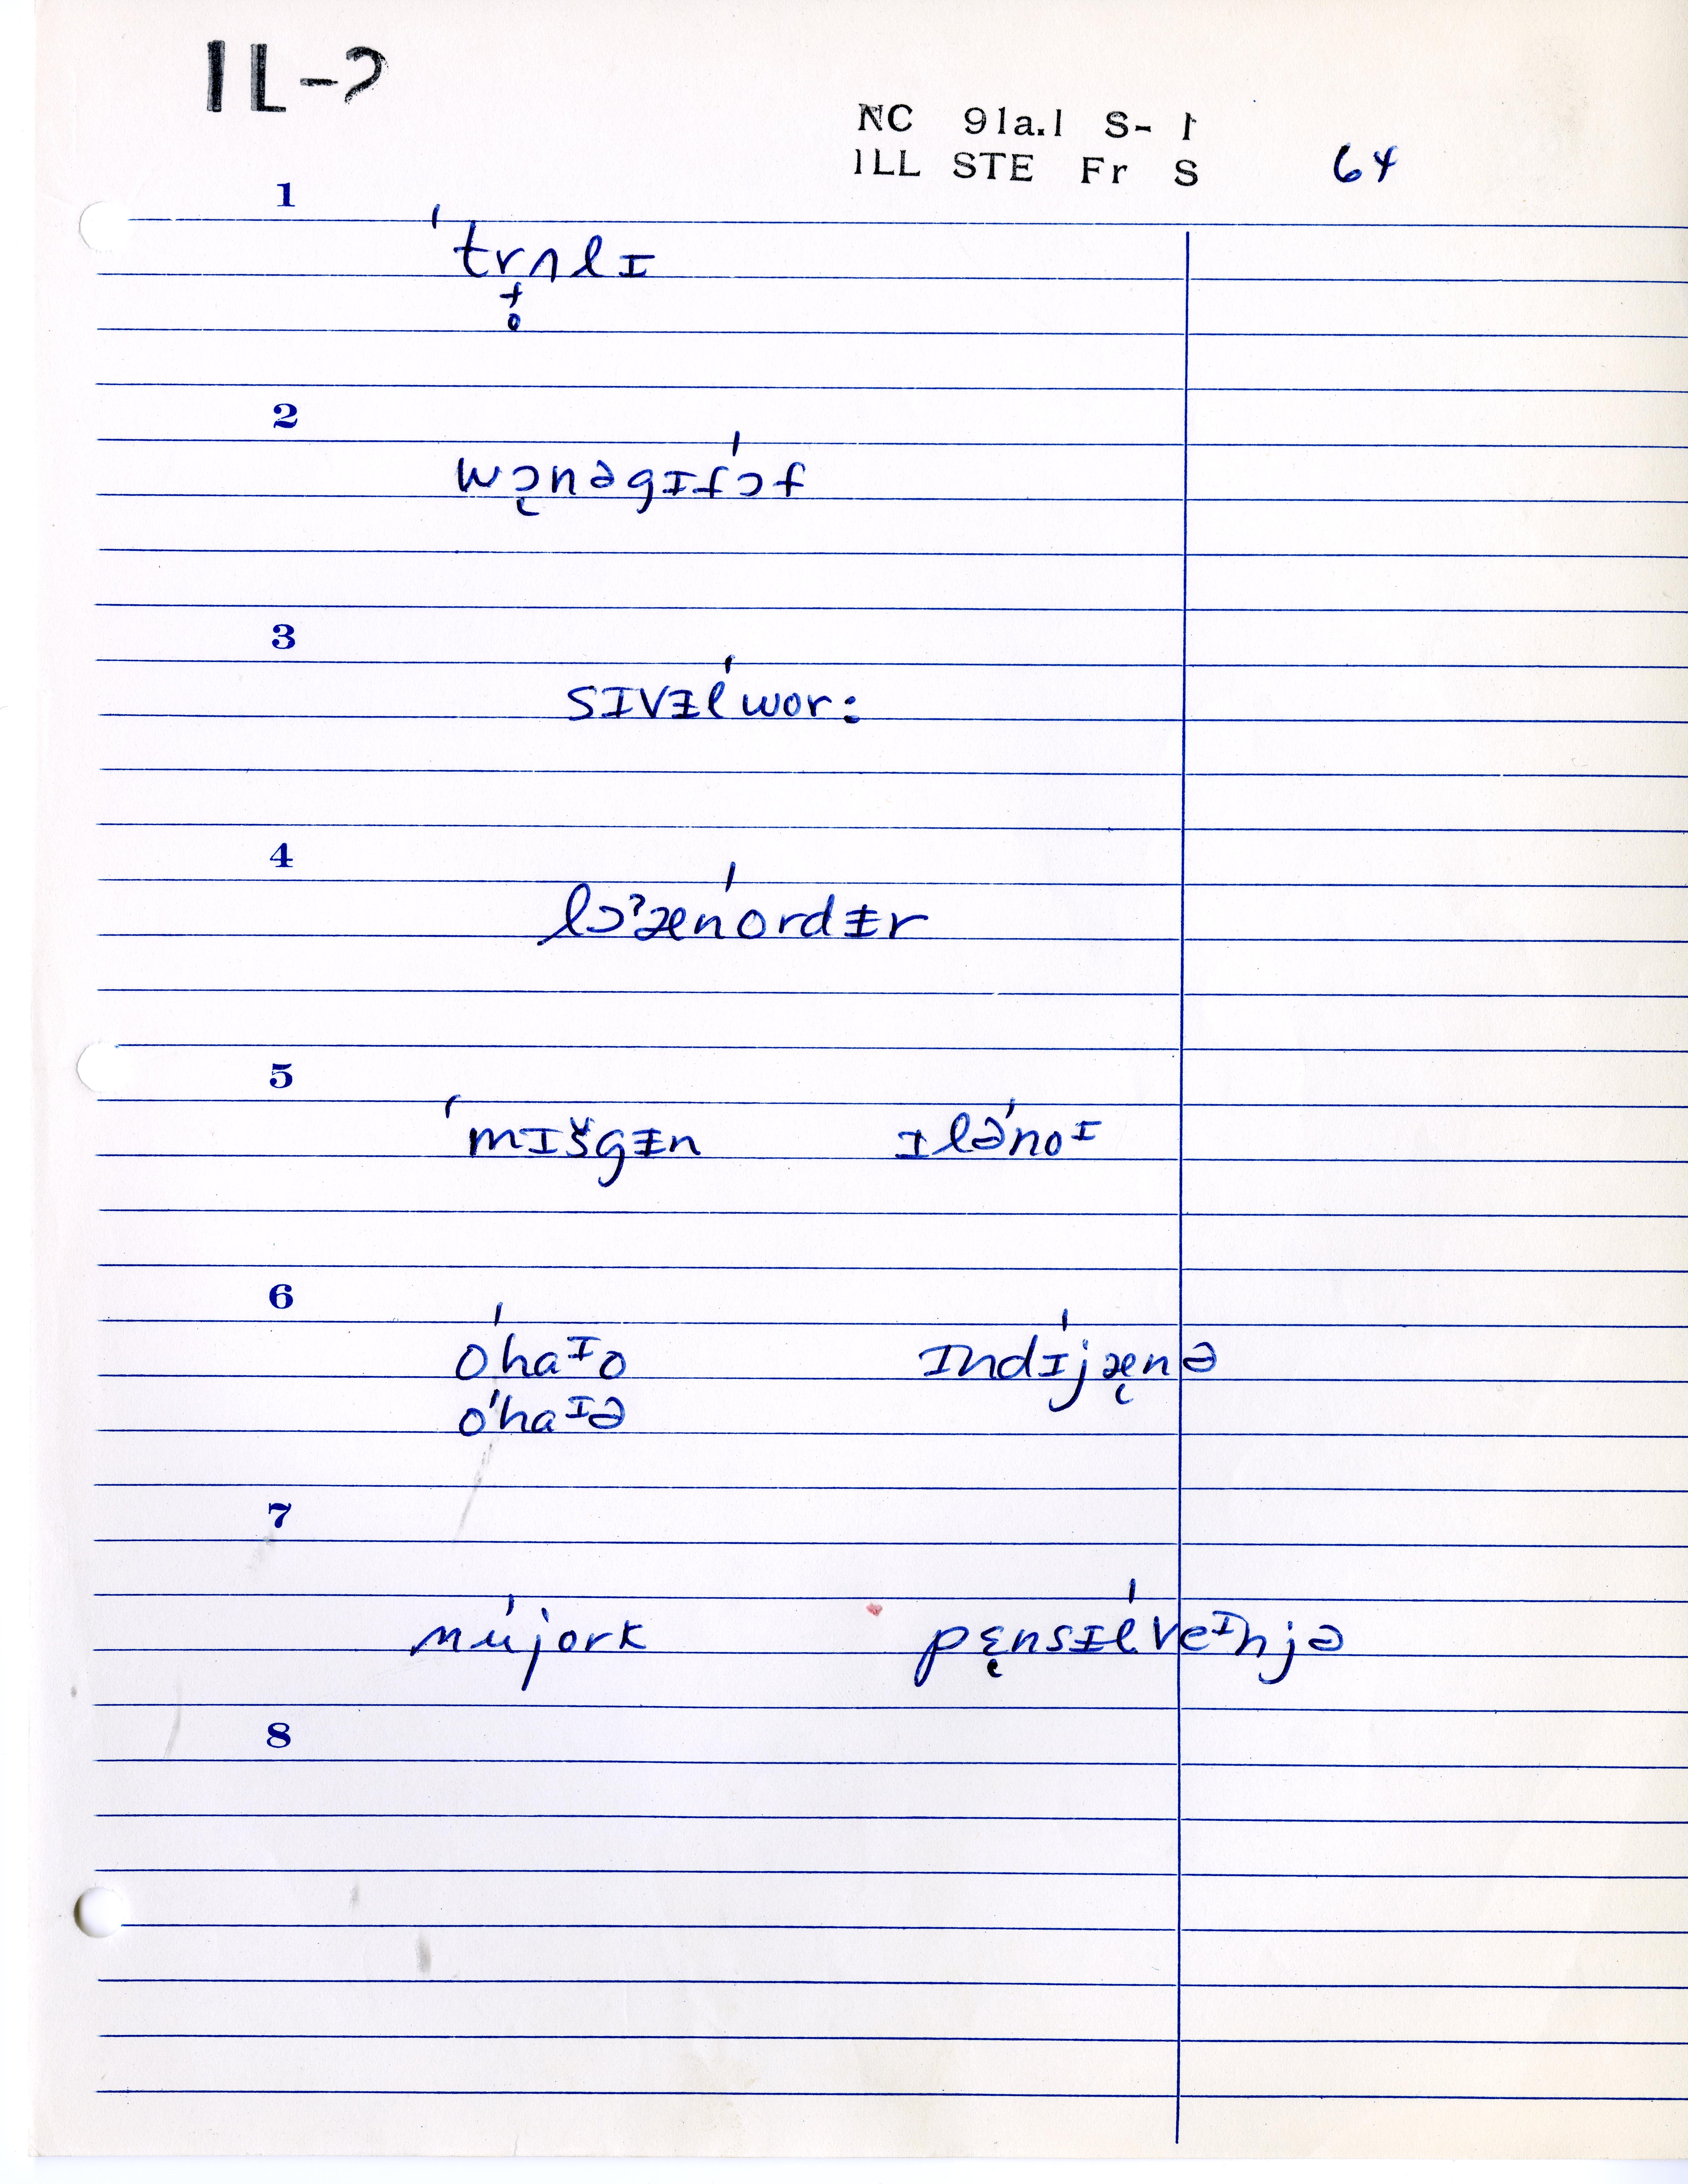 IL-2
NC 91a.1 S- 1
ILL STE Fr S 64
1
ˈtrʌlɪ
2
wɔ̨nəgɪfˈɔf
3
sɪvɨlˈwor:
4
lɔˀænˈordɨr
5
ˈmɪšgɨn ɪləˈnoᶦ
6
oˈhaᶦo ɪndɪˈjæ̨nə
oˈhaᶦə
7
nuˈjork pɛ̨nsɨlˈveᶦnjə
8